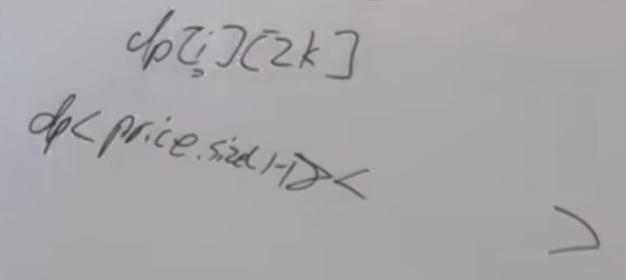 dp[i][2k]
dp<price.size()-1><